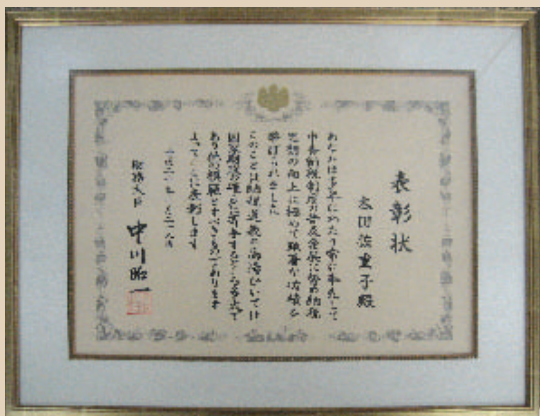 表彰状
太田 重子殿
あなたは多年にわたり常に率先して
申告納税制度の普及発展に努め納税
思想の向上に極めて顕著な功績を
挙げられました
このことは納税道義の高揚ひいては
国家財政の確立に寄与するところ多大で
あり他の模範とすべきものであります
よってここに表彰します
財務大臣 中川昭一